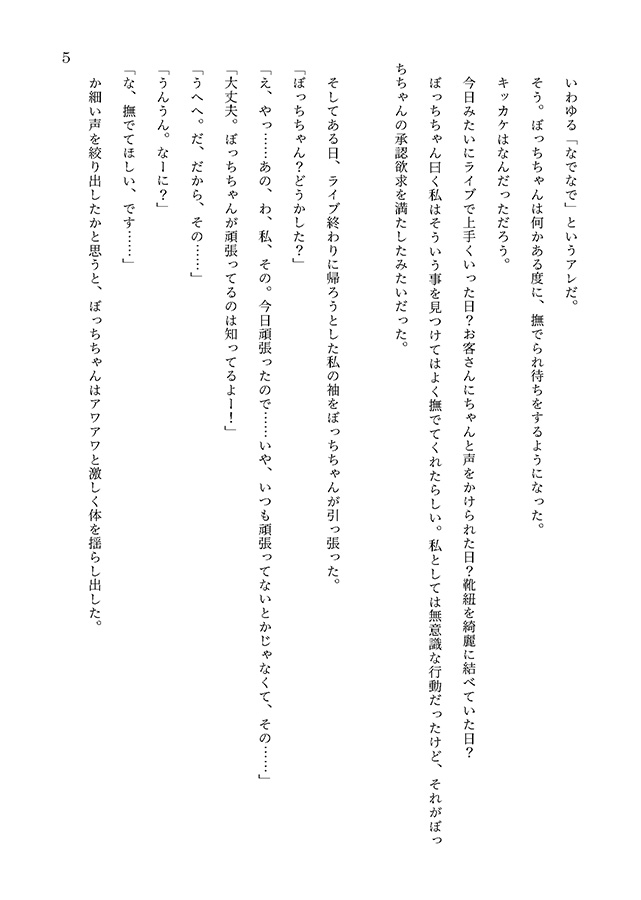 いわゆる「なでなで」というアレだ。
そう。ぼっちちゃんは何かある度に、撫でられ待ちをするようになった。
キッカケはなんだっただろう。
今日みたいにライブで上手くいった日？お客さんにちゃんと声をかけられた日？靴紐を綺麗に結べていた日？
ぼっちちゃん曰く私はそういう事を見つけてはよく撫でてくれたらしい。私としては無意識な行動だったけど、それがぼっ
ちちゃんの承認欲求を満たしたみたいだった。
そしてある日、ライブ終わりに帰ろうとした私の袖をぼっちちゃんが引っ張った。
「ぼっちちゃん？どうかした？」
「え、やっ……あの、わ、私、その。今日頑張ったので……いや、いつも頑張ってないとかじゃなくて、その……」
「大丈夫。ぼっちちゃんが頑張ってるのは知ってるよー！」
「うへへ。だ、だから、その……」
「うんうん。なーに？」
「な、撫でてほしい、です……」
か細い声を絞り出したかと思うと、ぼっちちゃんはアワアワと激しく体を揺らし出した。
5